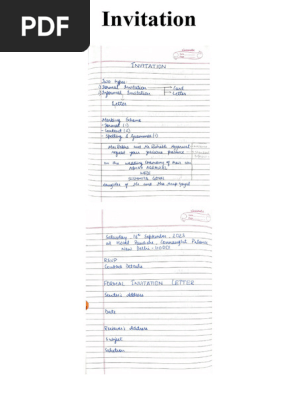 PDF
Invitation
INVITATION
Two types
Formal Invitation Card
Informal Invitation Letter
Letter
Marking Scheme
- Format (1)
- Content (2)
- Spelling & Grammar (1)
Mr. and Mrs. Agarwal
request your gracious presence
on the wedding ceremony of their son
WITH
daughter of Mr. and Mrs.
Saturday, 16th September, 2023
at Hotel Connaught Palace
New Delhi - 110001
RSVP
Contact Details
FORMAL INVITATION LETTER
Sender's Address
Date
Receiver's Address
Subject
Salutation